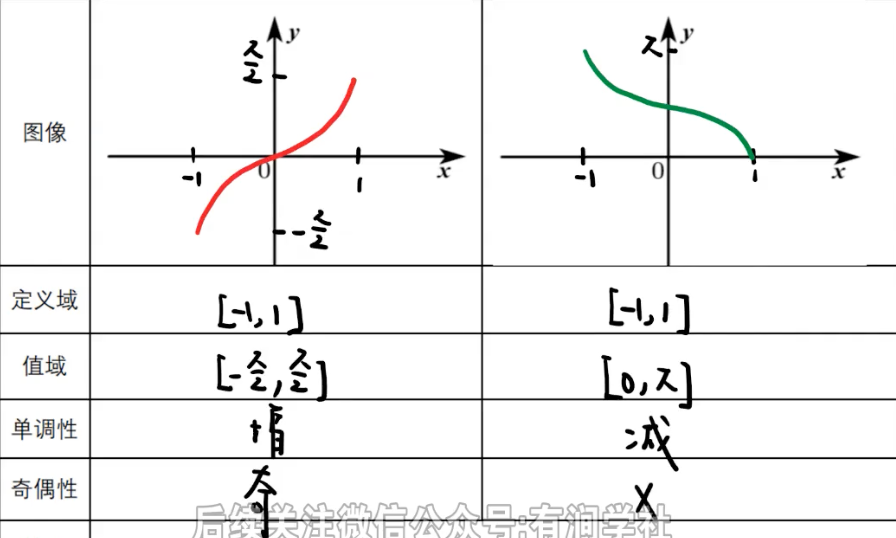 图像
π/2 y
-1 0 1 x
-π/2
π y
-1 0 1 x
定义域 [-1,1] [-1,1]
值域 [-π/2,π/2] [0,π]
单调性 增 减
奇偶性 奇 X
后续关注微信公众号:有润学社